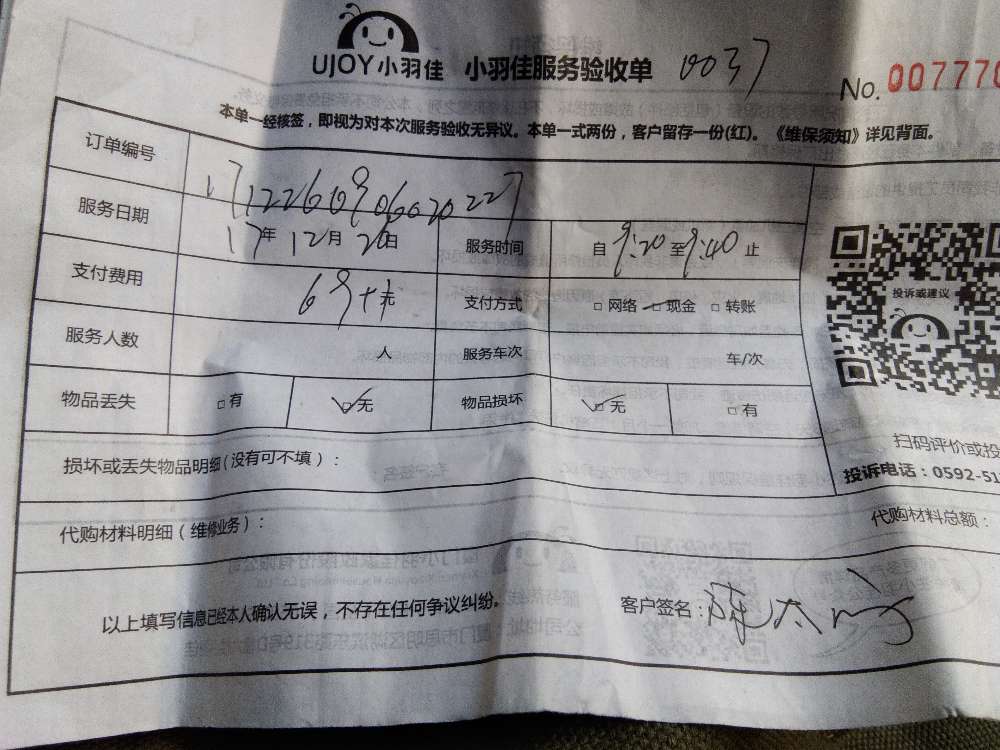 UJOY小羽佳 小羽佳服务验收单 0037
No. 007770
本单一经核签，即视为对本次服务验收无异议。本单一式两份，客户留存一份(红)。《维保须知》详见背面。
订单编号
服务日期 17年 12月 26日 服务时间 自 9:20 至 9:40 止
支付费用 支付方式 □ 网络 □ 现金 □ 转账
投诉或建议
服务人数 人 服务车次 车/次
物品丢失 □ 有 ☑ 无 物品损坏 ☑ 无 □ 有
扫码评价或投
损坏或丢失物品明细(没有可不填)：
投诉电话：0592-51
代购材料明细(维修业务)：
代购材料总额：
以上填写信息已经本人确认无误，不存在任何争议纠纷。 客户签名：陈太